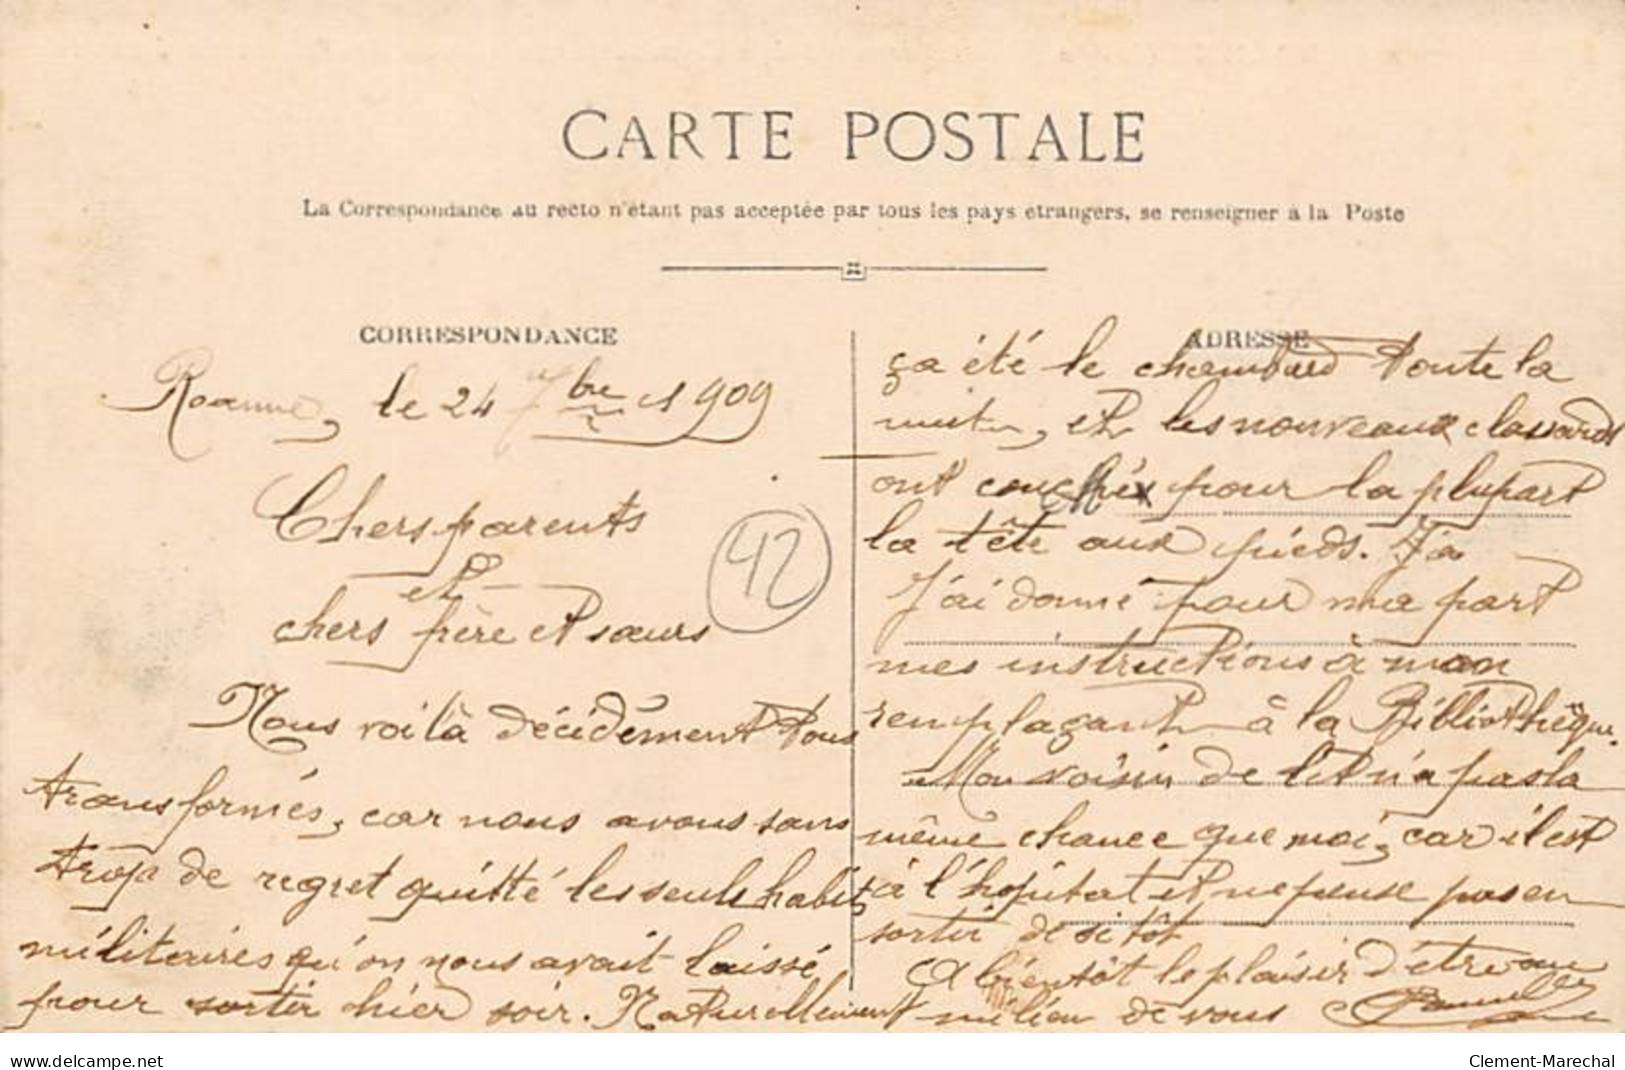 CARTE POSTALE
La Correspondance au recto n'étant pas acceptée par tous les pays étrangers, se renseigner à la Poste
CORRESPONDANCE
Roanne, le 24 7bre 1909
Chers parents
et
chers frère et sœurs
Nous voilà décidément tous
transformés, car nous avons sans
trop de regret quitté les seuls habits
militaires qu'on nous avait laissé
pour sortir hier soir. Naturellement
42
ADRESSE
ça été le chambard toute la
nuit, et les nouveaux classards
ont couchés pour la plupart
la tête aux pieds. J'a
J'ai donné pour ma part
mes instructions à mon
remplaçant à la Bibliothèque.
Mon voisin de lit n'a pas la
même chance que moi, car il est
à l'hopital et ne pense pas en
sortir de sitôt
A bientôt le plaisir d'être au
milieu de vous
www.delcampe.net
Clement-Marechal